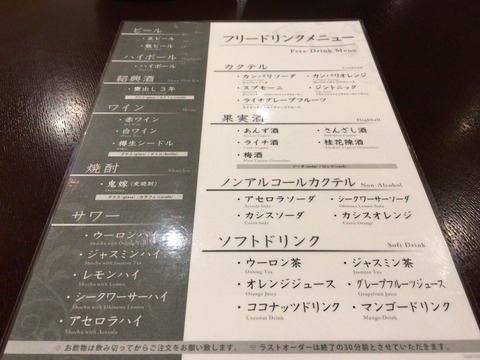 ビール
・生ビール
・瓶ビール
ハイボール
・ハイボール
紹興酒
・甕出し3年
ワイン
・赤ワイン
・白ワイン
・樽生シードル
焼酎
・鬼嫁(麦焼酎)
サワー
・ウーロンハイ
・ジャスミンハイ
・レモンハイ
・シークワーサーハイ
・アセロラハイ
Shochu with Acerola
※ お飲物は飲み切ってからご注文をお願い致します。
フリードリンクメニュー
Free Drink Menu
カクテル
Cocktail
・カンパリソーダ ・カンパリオレンジ
・スプモーニ ・ジントニック
・ライチグレープフルーツ
果実酒
Highball
・あんず酒 ・さんざし酒
・ライチ酒 ・桂花陳酒
・梅酒
ノンアルコールカクテル Non-Alcohol
・アセロラソーダ ・シークワーサーソーダ
・カシスソーダ ・カシスオレンジ
ソフトドリンク
Soft Drink
・ウーロン茶 ・ジャスミン茶
Oolong Tea Jasmine Tea
・オレンジジュース ・グレープフルーツジュース
Orange Juice Grapefruit Juice
・ココナッツドリンク ・マンゴードリンク
Coconut Drink Mango Drink
※ ラストオーダーは終了の30分前とさせていただきます。